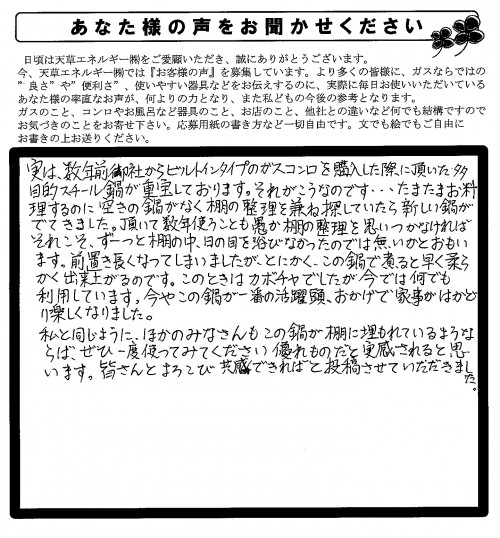 あなた様の声をお聞かせください
日頃は天草エネルギー㈱をご愛顧いただき、誠にありがとうございます。
今、天草エネルギー㈱では『お客様の声』を募集しています。より多くの皆様に、ガスならではの
”良さ”や”便利さ”、使いやすい器具などをお伝えするのに、実際に毎日お使いいただいている
あなた様の率直なお声が、何よりの力となり、また私どもの今後の参考となります。
ガスのこと、コンロやお風呂など器具のこと、お店のこと、他社との違いなど何でも結構ですので
お気づきのことをお寄せ下さい。応募用紙の書き方など一切自由です。文でも絵でもご自由に
お書きの上お送りください。
実は、数年前御社からビルトインタイプのガスコンロを購入した際に頂いた多
目的スチール鍋が重宝しております。それがこうなのです・・・たまたまお料
理するのに空きの鍋がなく棚の整理を兼ね探していたら新しい鍋が
でてきました。頂いて数年使うことも愚か棚の整理を思いつかなければ
それこそ、ずーっと棚の中、日の目を浴びなかったのでは無いかとおもい
ます。前置き長くなってしまいましたが、とにかく、この鍋で煮ると早く柔ら
かく出来上がるのです。このときはカボチャでしたが今では何でも
利用しています。今やこの鍋が一番の活躍頭、おかげで家事がはかど
り楽しくなりました。
私と同じように、ほかのみなさんもこの鍋が棚に埋もれているような
らば、ぜひ一度使ってみてください優れものだと実感されると思
います。皆さんとよろこび共感できればと投稿させていただきまし
た。